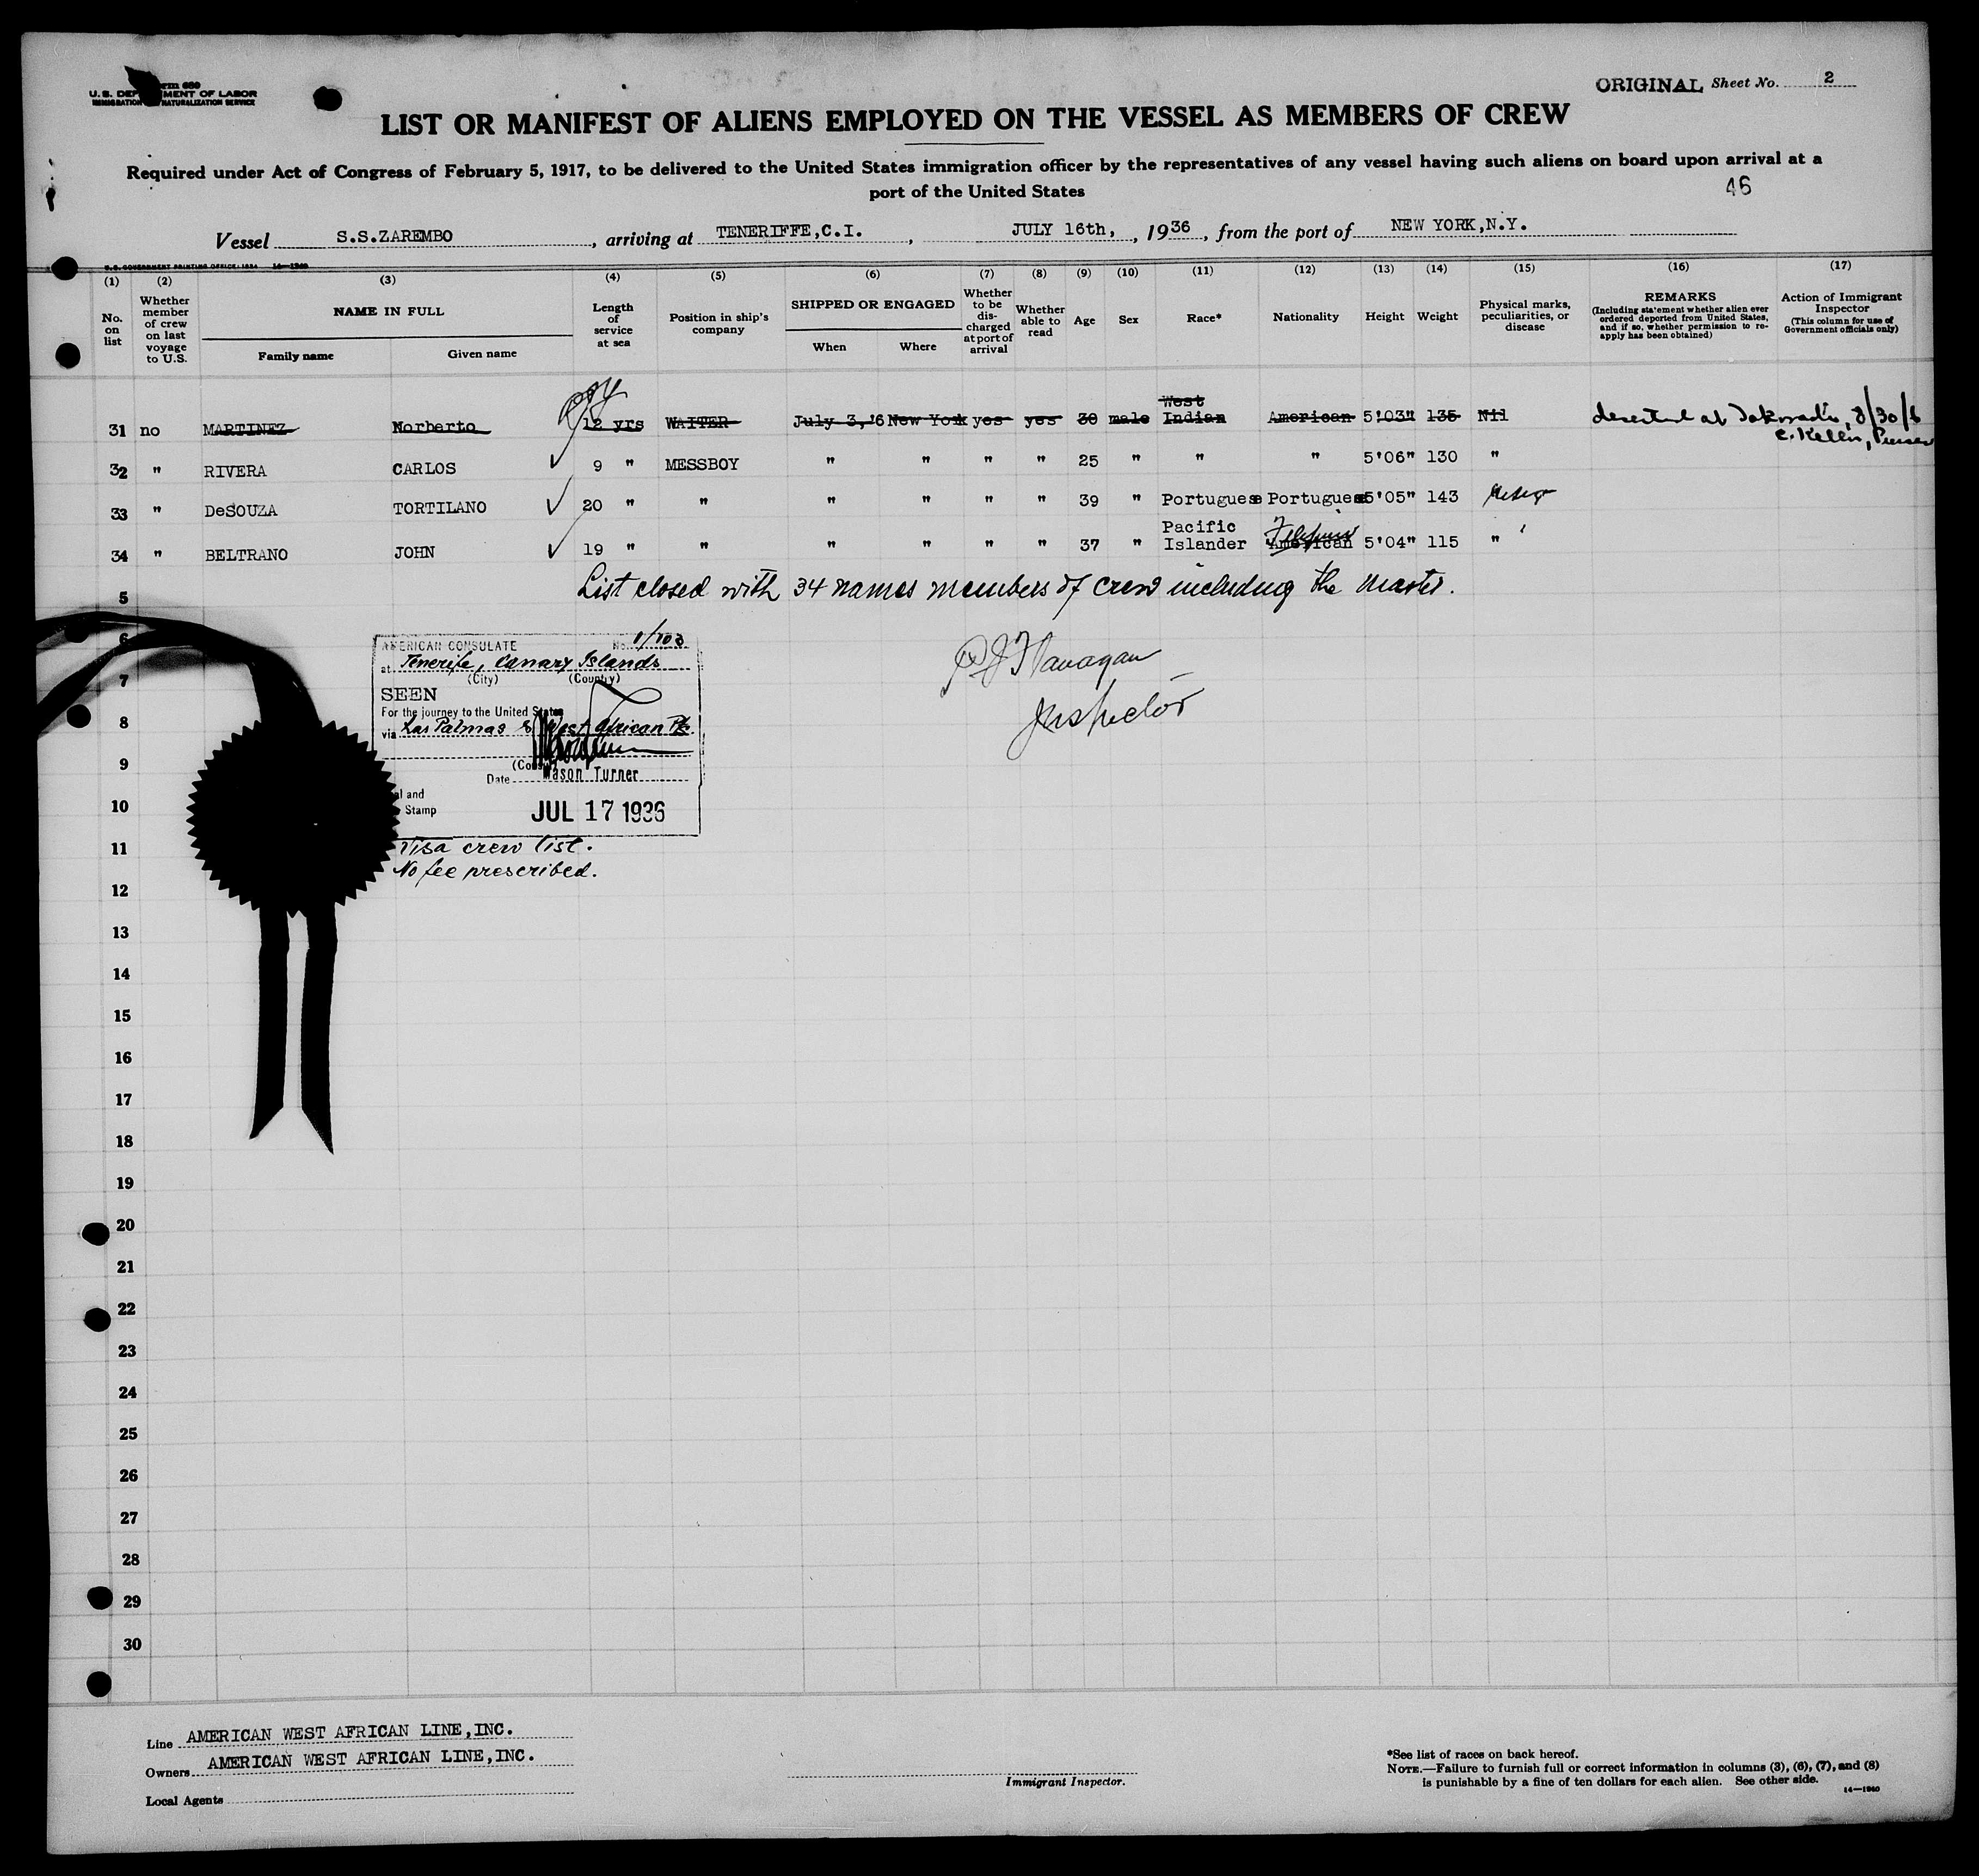 ORIGINAL Sheet No. 2
U. S. DEPARTMENT OF LABOR
IMMIGRATION NATURALIZATION SERVICE
LIST OR MANIFEST OF ALIENS EMPLOYED ON THE VESSEL AS MEMBERS OF CREW
Required under Act of Congress of February 5, 1917, to be delivered to the United States immigration officer by the representatives of any vessel having such aliens on board upon arrival at a
port of the United States
46
Vessel S.S.ZAREMBO, arriving at TENERIFFE,C.I., JULY 16th, 1936, from the port of NEW YORK,N.Y.
(1) (2) (3) (4) (5) (6) (7) (8) (9) (10) (11) (12) (13) (14) (15) (16) (17)
No. on list
Whether member of crew on last voyage to U.S.
NAME IN FULL
Family name
Given name
Length of service at sea
Position in ship's company
SHIPPED OR ENGAGED
When
Where
Whether to be dis-charged at port of arrival
Whether able to read
Age
Sex
Race*
Nationality
Height
Weight
Physical marks, peculiarities, or disease
REMARKS
(Including statement whether alien ever ordered deported from United States, and if so, whether permission to re-apply has been obtained)
Action of Immigrant Inspector
(This column for use of Government officials only)
31 no MARTINEZ Norberto 12 yrs WAITER July 3,'6 New York yes yes 30 male West Indian American 5'03" 135 Nil deserted at Takoradi, 8/30/6
C. Keller, Purser
32 " RIVERA CARLOS 9 " MESSBOY " " " " 25 " " " 5'06" 130 "
33 " DeSOUZA TORTILANO 20 " " " " " " 39 " Portuguese Portuguese 5'05" 143
34 " BELTRANO JOHN 19 " " " " " " 37 " Pacific Islander American Filipino 5'04" 115 "
5 List closed with 34 names members of crew including the Master.
6
7
8
9
10
11
12
13
14
15
16
17
18
19
20
21
22
23
24
25
26
27
28
29
30
PJ Flanagan
Inspector
AMERICAN CONSULATE No.
at Tenerife, Canary Islands
(City) (Country)
SEEN
For the journey to the United States
via Las Palmas & West African Pts.
Date Mason Turner
Stamp
JUL 17 1936
Visa crew list.
No fee prescribed.
Line AMERICAN WEST AFRICAN LINE,INC.
Owners AMERICAN WEST AFRICAN LINE,INC.
Local Agents
Immigrant Inspector.
*See list of races on back hereof.
NOTE.—Failure to furnish full or correct information in columns (3), (6), (7), and (8)
is punishable by a fine of ten dollars for each alien. See other side.
14—1940